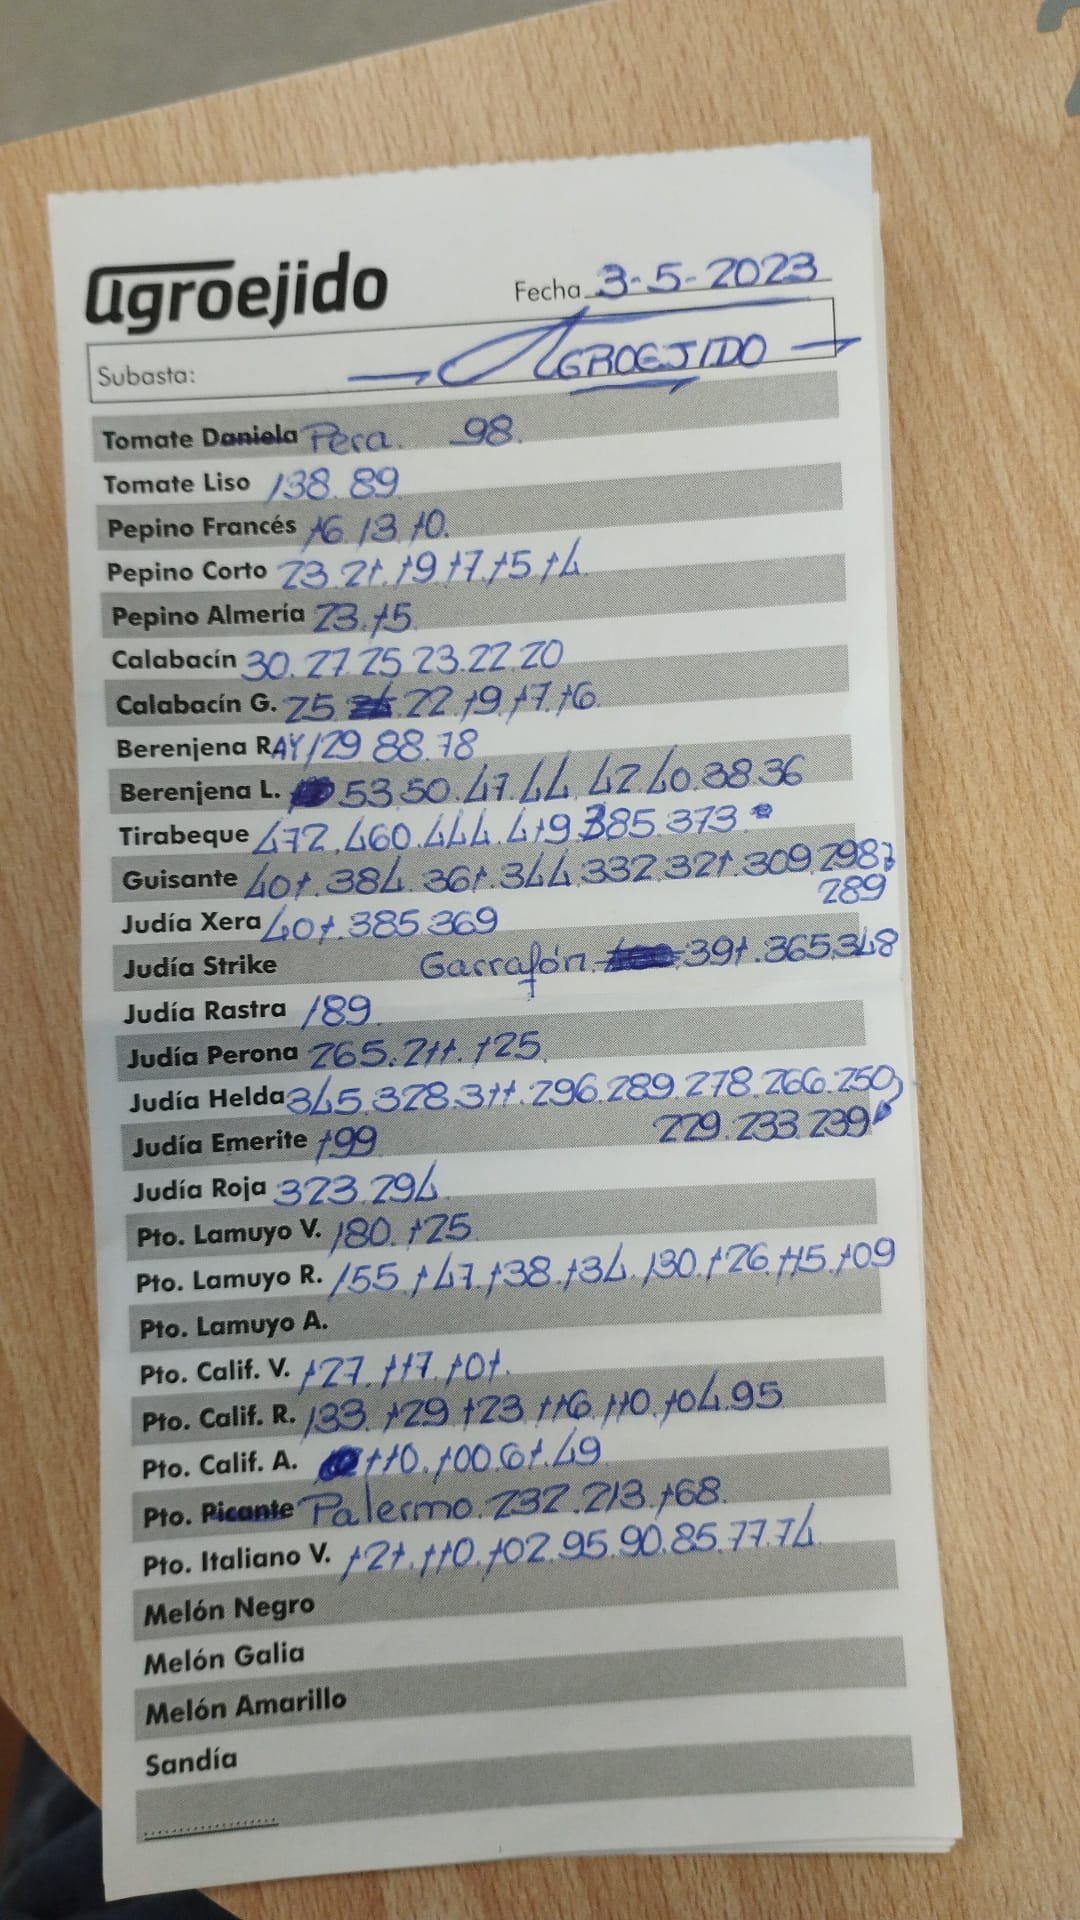 agroejido
Fecha 3-5-2023
Subasta: AGROEJIDO
Tomate Daniela Pera. 98.
Tomate Liso 138.89
Pepino Francés 16.13.10.
Pepino Corto 23.21.19.17.15.14
Pepino Almería 23.15
Calabacín 30.27.25.23.22.20
Calabacín G. 25. 22.19.17.16
Berenjena RAY 129 88.78
Berenjena L. 53.50.47.44.42.40.38.36
Tirabeque 472.460.444.419.385.373
Guisante 401.384.361.344.332.321.309.298
289
Judía Xera 401.385.369
Judía Strike Garrafón. 391.365.348
Judía Rastra 189
Judía Perona 265.211.125
Judía Helda 345.328.311.296.289.278.266.250
229.233.239
Judía Emerite 199
Judía Roja 323.294
Pto. Lamuyo V. 180.125
Pto. Lamuyo R. 155.147.138.134.130.126.115.109
Pto. Lamuyo A.
Pto. Calif. V. 127.117.101.
Pto. Calif. R. 133.129.123.116.110.104.95
Pto. Calif. A. 110.100.61.49
Pto. Picante Palermo.232.213.168.
Pto. Italiano V. 121.110.102.95.90.85.77.74
Melón Negro
Melón Galia
Melón Amarillo
Sandía